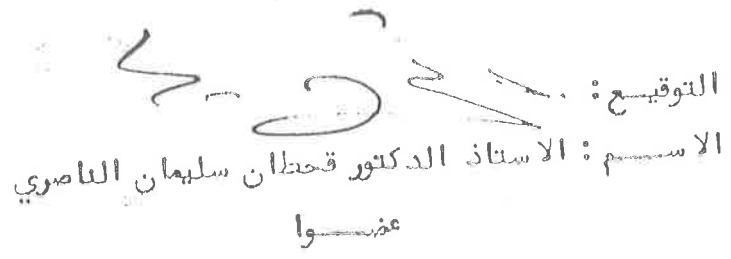 التوقيـــع :
الاســـم : الاستاذ الدكتور قحطان سليمان الناصري
عضـــوا